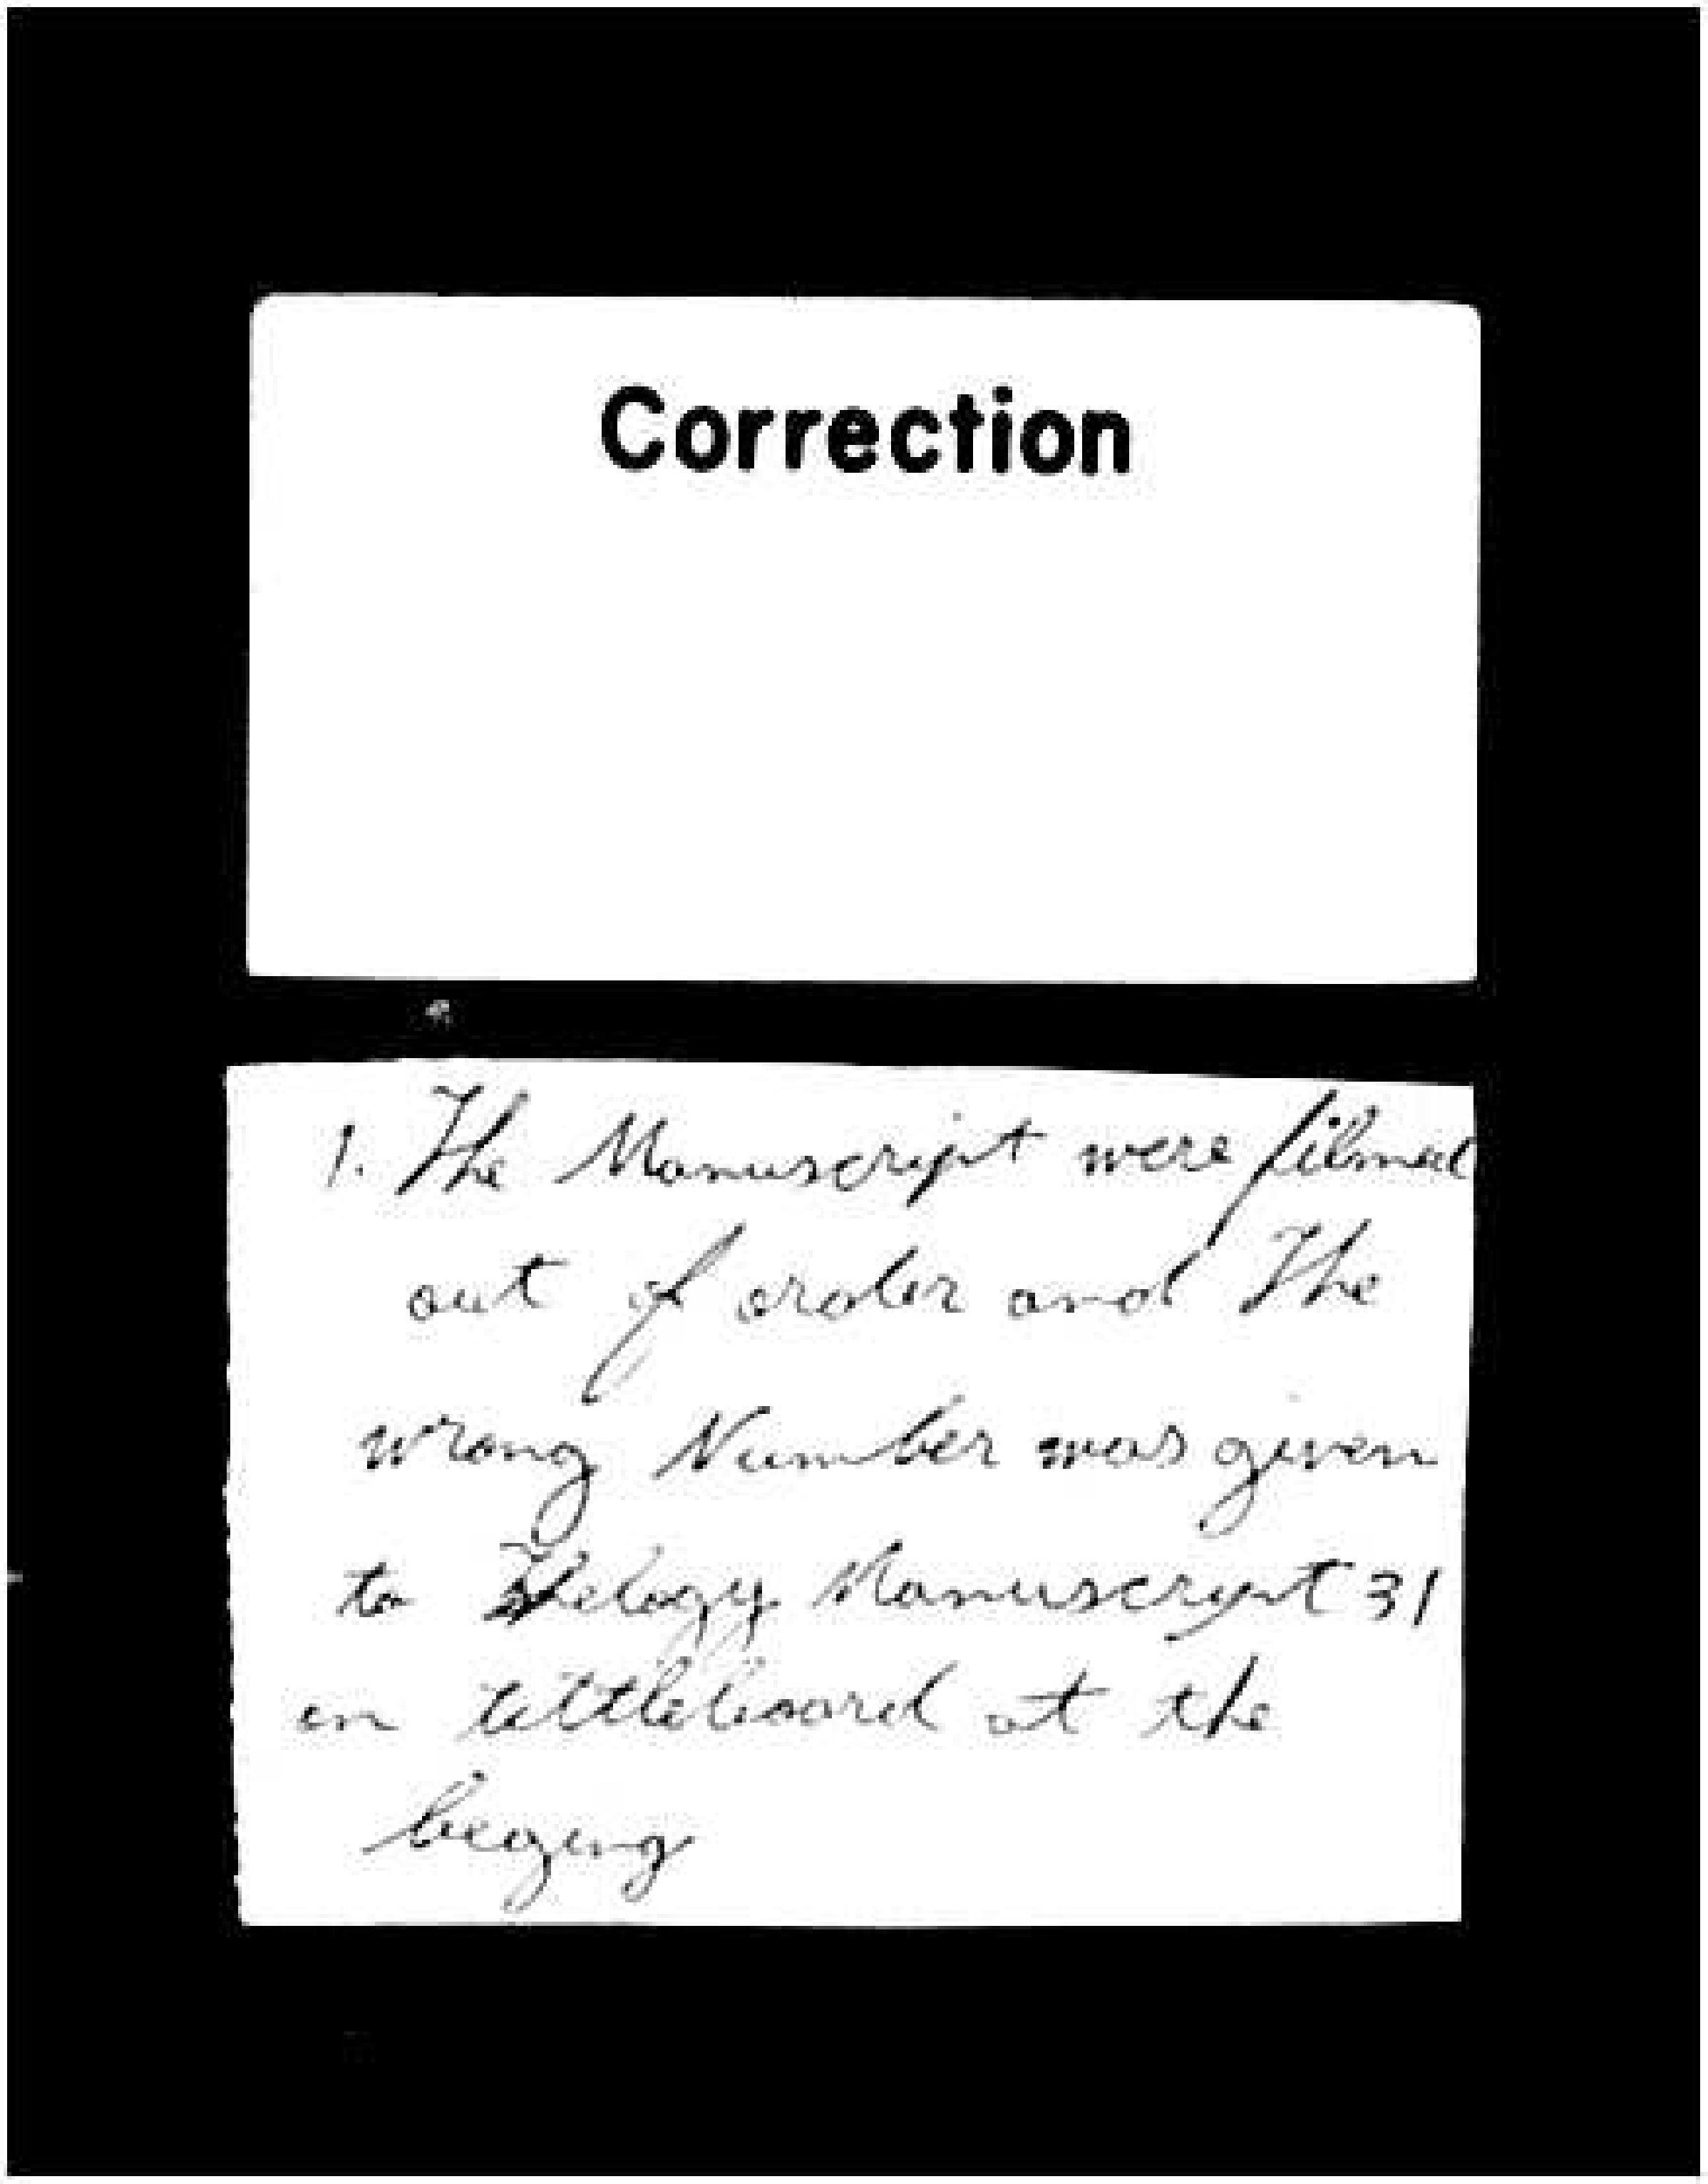 Correction
1. The Manuscript were filmed
out of order and The
wrong Number was given
to Thelogy Manuscript 31
in tittleboard at the
beging